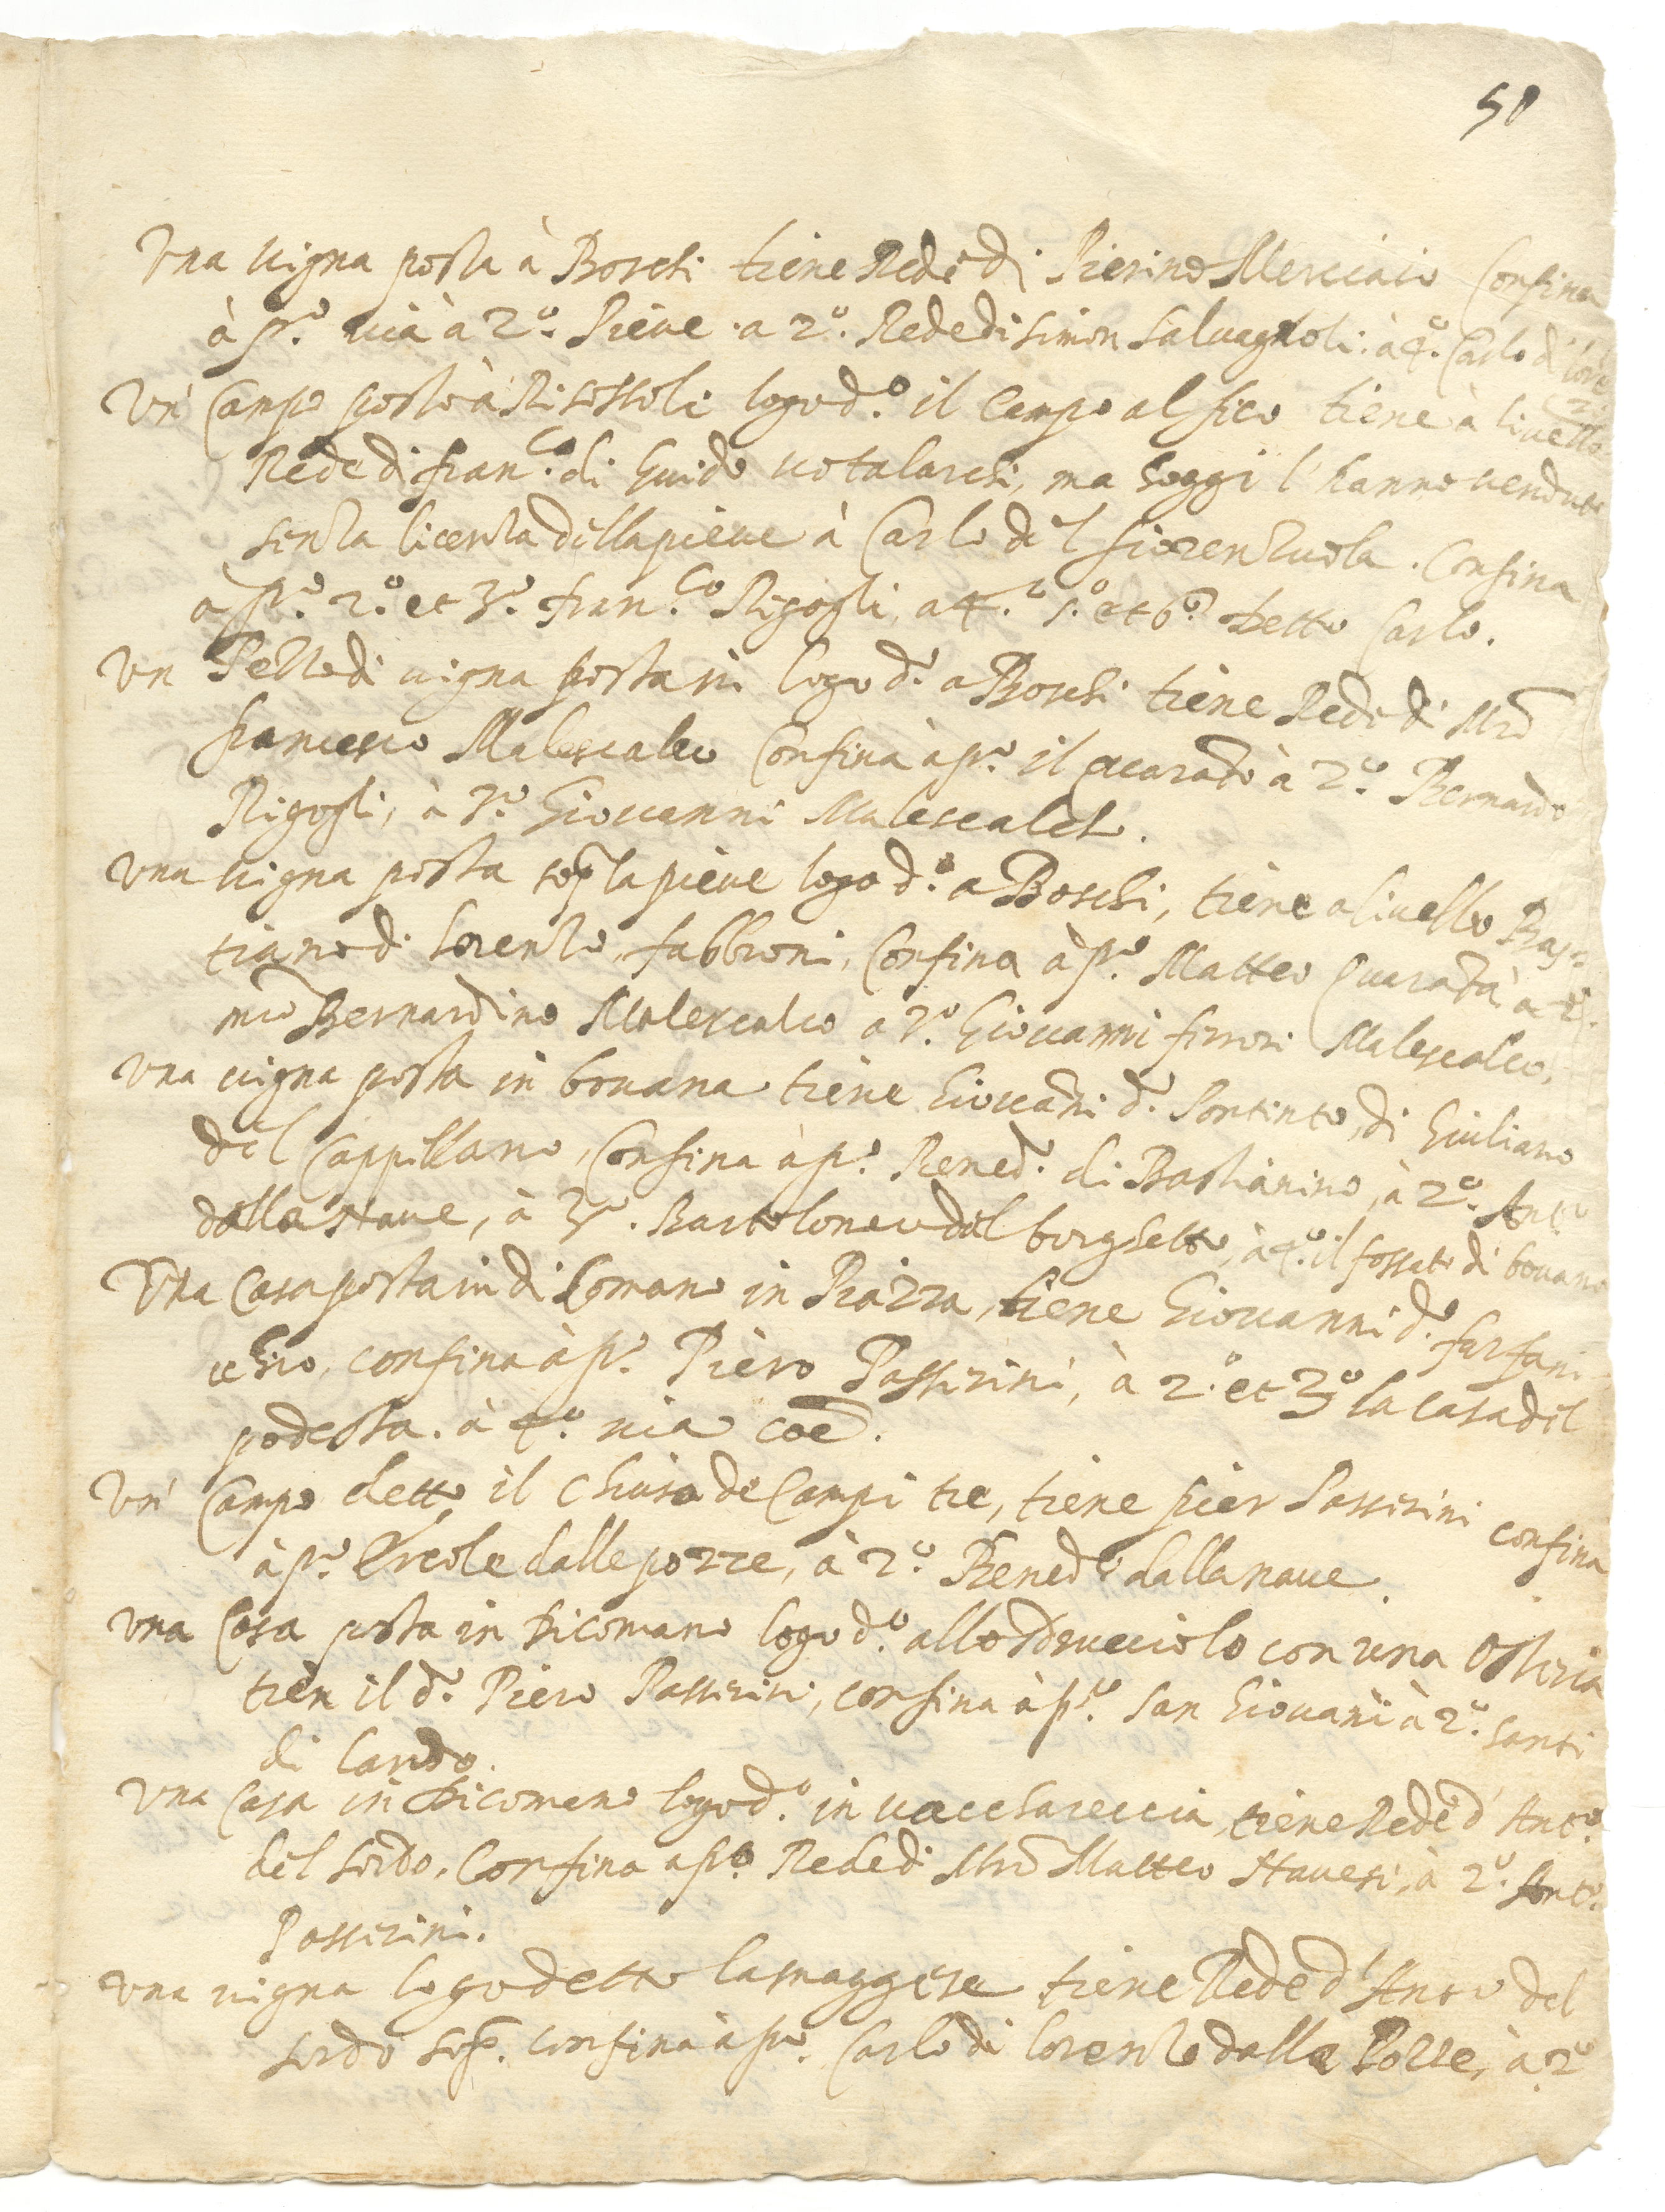 50
Una uigna posta à Boschi tiene Rede di Pierino Merciaio Confina
à p.º uia à 2.º Pieue a 2.º Rede di Simon Saluagnoli. à 4.º Carlo di Lore
Un' Campo posto à logo d.º il Campo al fico tiene à liuello
Rede di Fran.co di Guido uotalarchi, ma hoggi l'hanno uenduto
senza licenza della pieue à Carlo del fiorenzuola. Confina
à p.º 2.º et 3.º Fran.co Rigogli, a 4.º 5.º et 6.º detto Carlo.
Un Pezzo di uigna posta in logo d.º a Boschi tiene Rede di Mrō
francesco Malescalco Confina à p.º il à 2.º Bernardo
Rigogli, à 3.º Giouanni Malescalch.
Una uigna posta sop.ª la pieue logo d.º a Boschi, tiene a liuello Bas=
tiano di Lorenzo fabbroni, Confina à p.º Matteo Quaratà à 2.º
mrō Bernardino Malescalco a 3.º Giouanni ferrori Malescalco.
Una uigna posta in bouana tiene Giouāni d.º Pontinto, di Giuliano
del Cappillano, Confina à p.º Bened.º di Bastianino, à 2.º Ant.º
dalla Naue, à 3.º Bartolomeo dal borghetto, à 4.º il fossato di bouano
Una Casa posta in dicomano in Piazza, tiene Giouanni d.º farfani
cchio, confina à p.º Piero Passerini, à 2.º et 3.º la casa del
podesta. à 4.º uia coē.
Un' Campo detto il Chiuso de Campi tre, tiene pier Passerini confina
à p.º Ercole dalle pozze, à 2.º Bened.º dalla naue.
Una Casa posta in Dicomano logo d.º allo sdrucciolo con una Osteria
tien il d.º Piero Passerini, confina à p.º San Giouāni à 2.º Santi
di Lando.
Una Casa in Dicomano logo d.º in uacchareccia, tiene Rede d' Ant.º
del Sordo. Confina a p.º Rede di Mrō Matteo Nauesi, à 2.º Ant.º
Passerini.
Una uigna logo detto la maggese tiene Rede d' Ant.º del
sordo sop.º confina à p.º Carlo di Lorenzo dalle Pozze, à 2.º